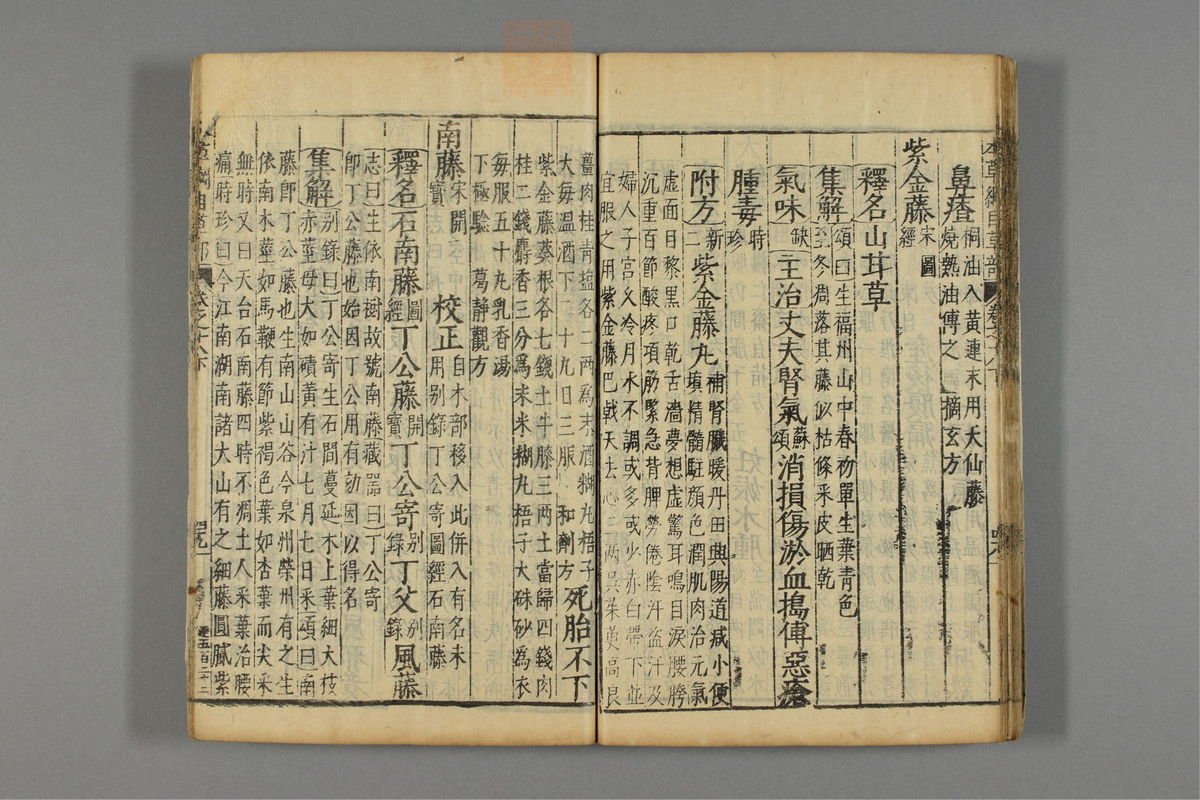 本草綱目草部 卷之十八下
鼻瘡 桐油入黃連末用天仙藤
燒熱油傅之 摘玄方
紫金藤 宋圖
經
釋名山甘草
集解 頌曰生福州山中春初單生葉青色
至冬凋落其藤似枯條采皮晒乾
氣味 缺 主治丈夫腎氣 蘇
頌 消損傷淤血搗傅惡瘡
腫毒 時
珍
附方 新
二 紫金藤丸 補腎臟暖丹田興陽道减小便
填精髓駐顏色潤肌肉治元氣
虛面目黎黑口乾舌濇夢想虛驚耳鳴目淚腰胯
沉重百節酸疼項筋緊急背胛勞倦陰汗盜汗及
婦人子宮久冷月水不調或多或少赤白帶下並
宜服之用紫金藤巴戟天去心三兩吳茱萸高良
薑肉桂青塩各二兩爲末酒糊丸梧子
大每温酒下二十丸日三服 和劑方 死胎不下
紫金藤葵根各七錢土牛膝三兩土當歸四錢肉
桂二錢麝香三分爲末米糊丸梧子大硃砂爲衣
每服五十丸乳香湯
下極驗 葛靜觀方
南藤 宋開
寶 校正 自木部移入此併入有名未
用别録丁公寄圖經石南藤
釋名石南藤 圖
經 丁公藤 開
寶 丁公寄 别
録 丁父 别
録 風藤
志曰生依南樹故號南藤藏器曰丁公寄
即丁公藤也始因丁公用有効因以得名
集解 别録曰丁公寄生石間蔓延木上葉細大枝
赤莖母大如磧黃有汁七月七日采頌曰南
藤即丁公藤也生南山山谷今泉州榮州有之生
依南木莖如馬鞭有節紫褐色葉如杏葉而尖采
無時又曰天台石南藤四時不凋土人采葉治腰
痛時珍曰今江南湖南諸大山有之細藤圓膩紫